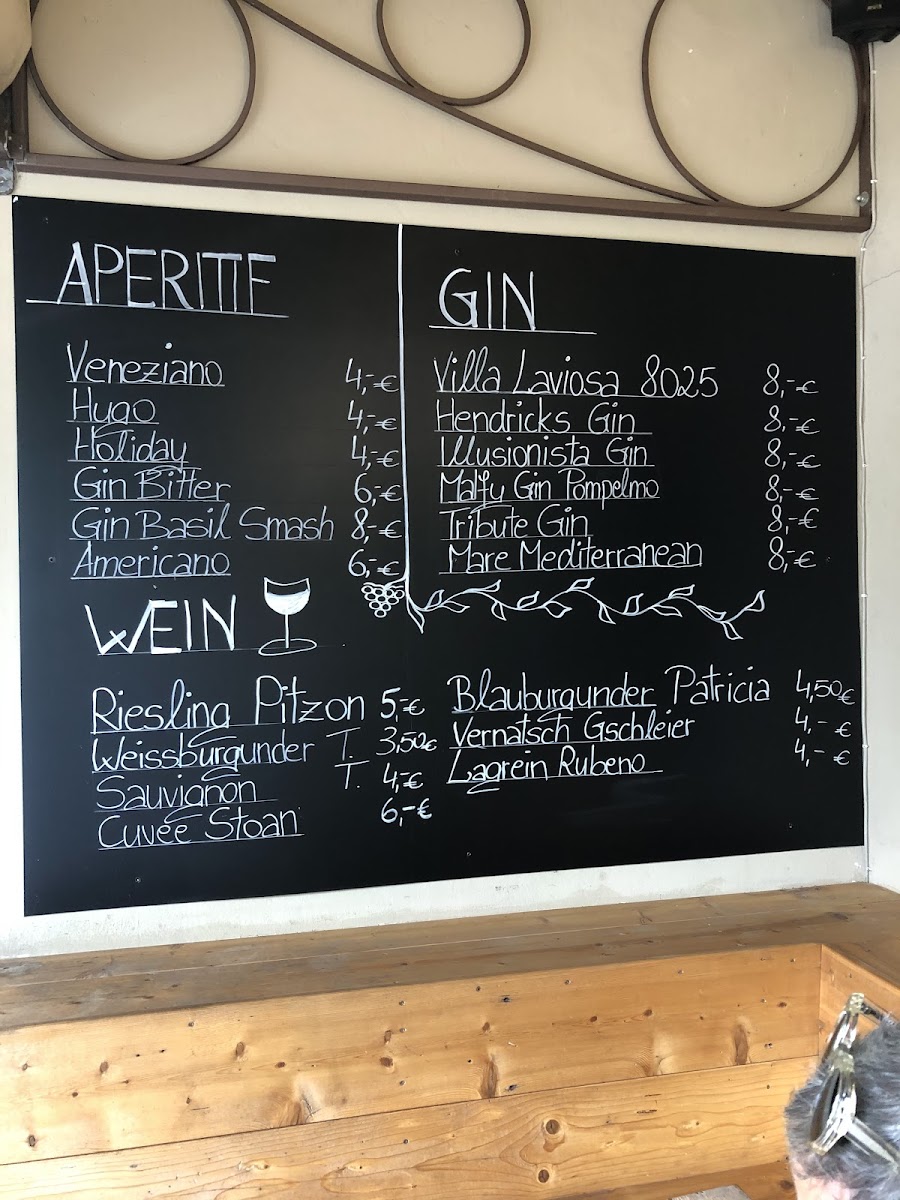 APERITIF
Veneziano 4,-€
Hugo 4,-€
Holiday 4,-€
Gin Bitter 6,-€
Gin Basil Smash 8,-€
Americano 6,-€
GIN
Villa Laviosa 8025 8,-€
Hendricks Gin 8,-€
Illusionista Gin 8,-€
Malfy Gin Pompelmo 8,-€
Tribute Gin 8,-€
Mare Mediterranean 8,-€
WEIN
Riesling Pitzon 5,-€
Weissburgunder T. 3,50€
Sauvignon T. 4,-€
Cuvée Stoan 6,-€
Blauburgunder Patricia 4,50€
Vernatsch Gschleier 4,- €
Lagrein Rubeno 4,- €